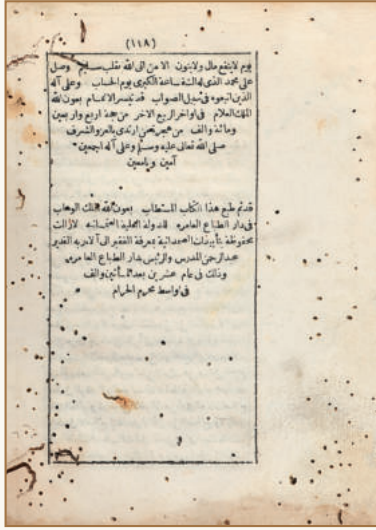 (١١٨)
يوم لا ينفع مال ولا بنون الا من اتى الله بقلب سليم وصل
على محمد الذى له الشفاعة الكبرى يوم الحساب وعلى آله
الذين اتبعوه فى سبيل الصواب قد تيسر الاتمام بعون الله
الملك العلام فى اواخر الربيع الاخر من سنة اربع واربعين
ومائة والف من هجرة من ارتدى بالعز والشرف
صلى الله تعالى عليه وسلم وعلى آله اجمعين
آمين
قد تم طبع هذا الكتاب المستطاب بعون الله الملك الوهاب
فى دار الطباع العامره للدولة العلية العثمانيه لازالت
محفوظة بتأييدات الصمدانية بمعرفة الفقير الى آلاء ربه القدير
عبدالرحمن المدرس والرئيس بدار الطباع العامره
وذلك فى عام عشرين بعد مأتين والف
فى اواسط محرم الحرام